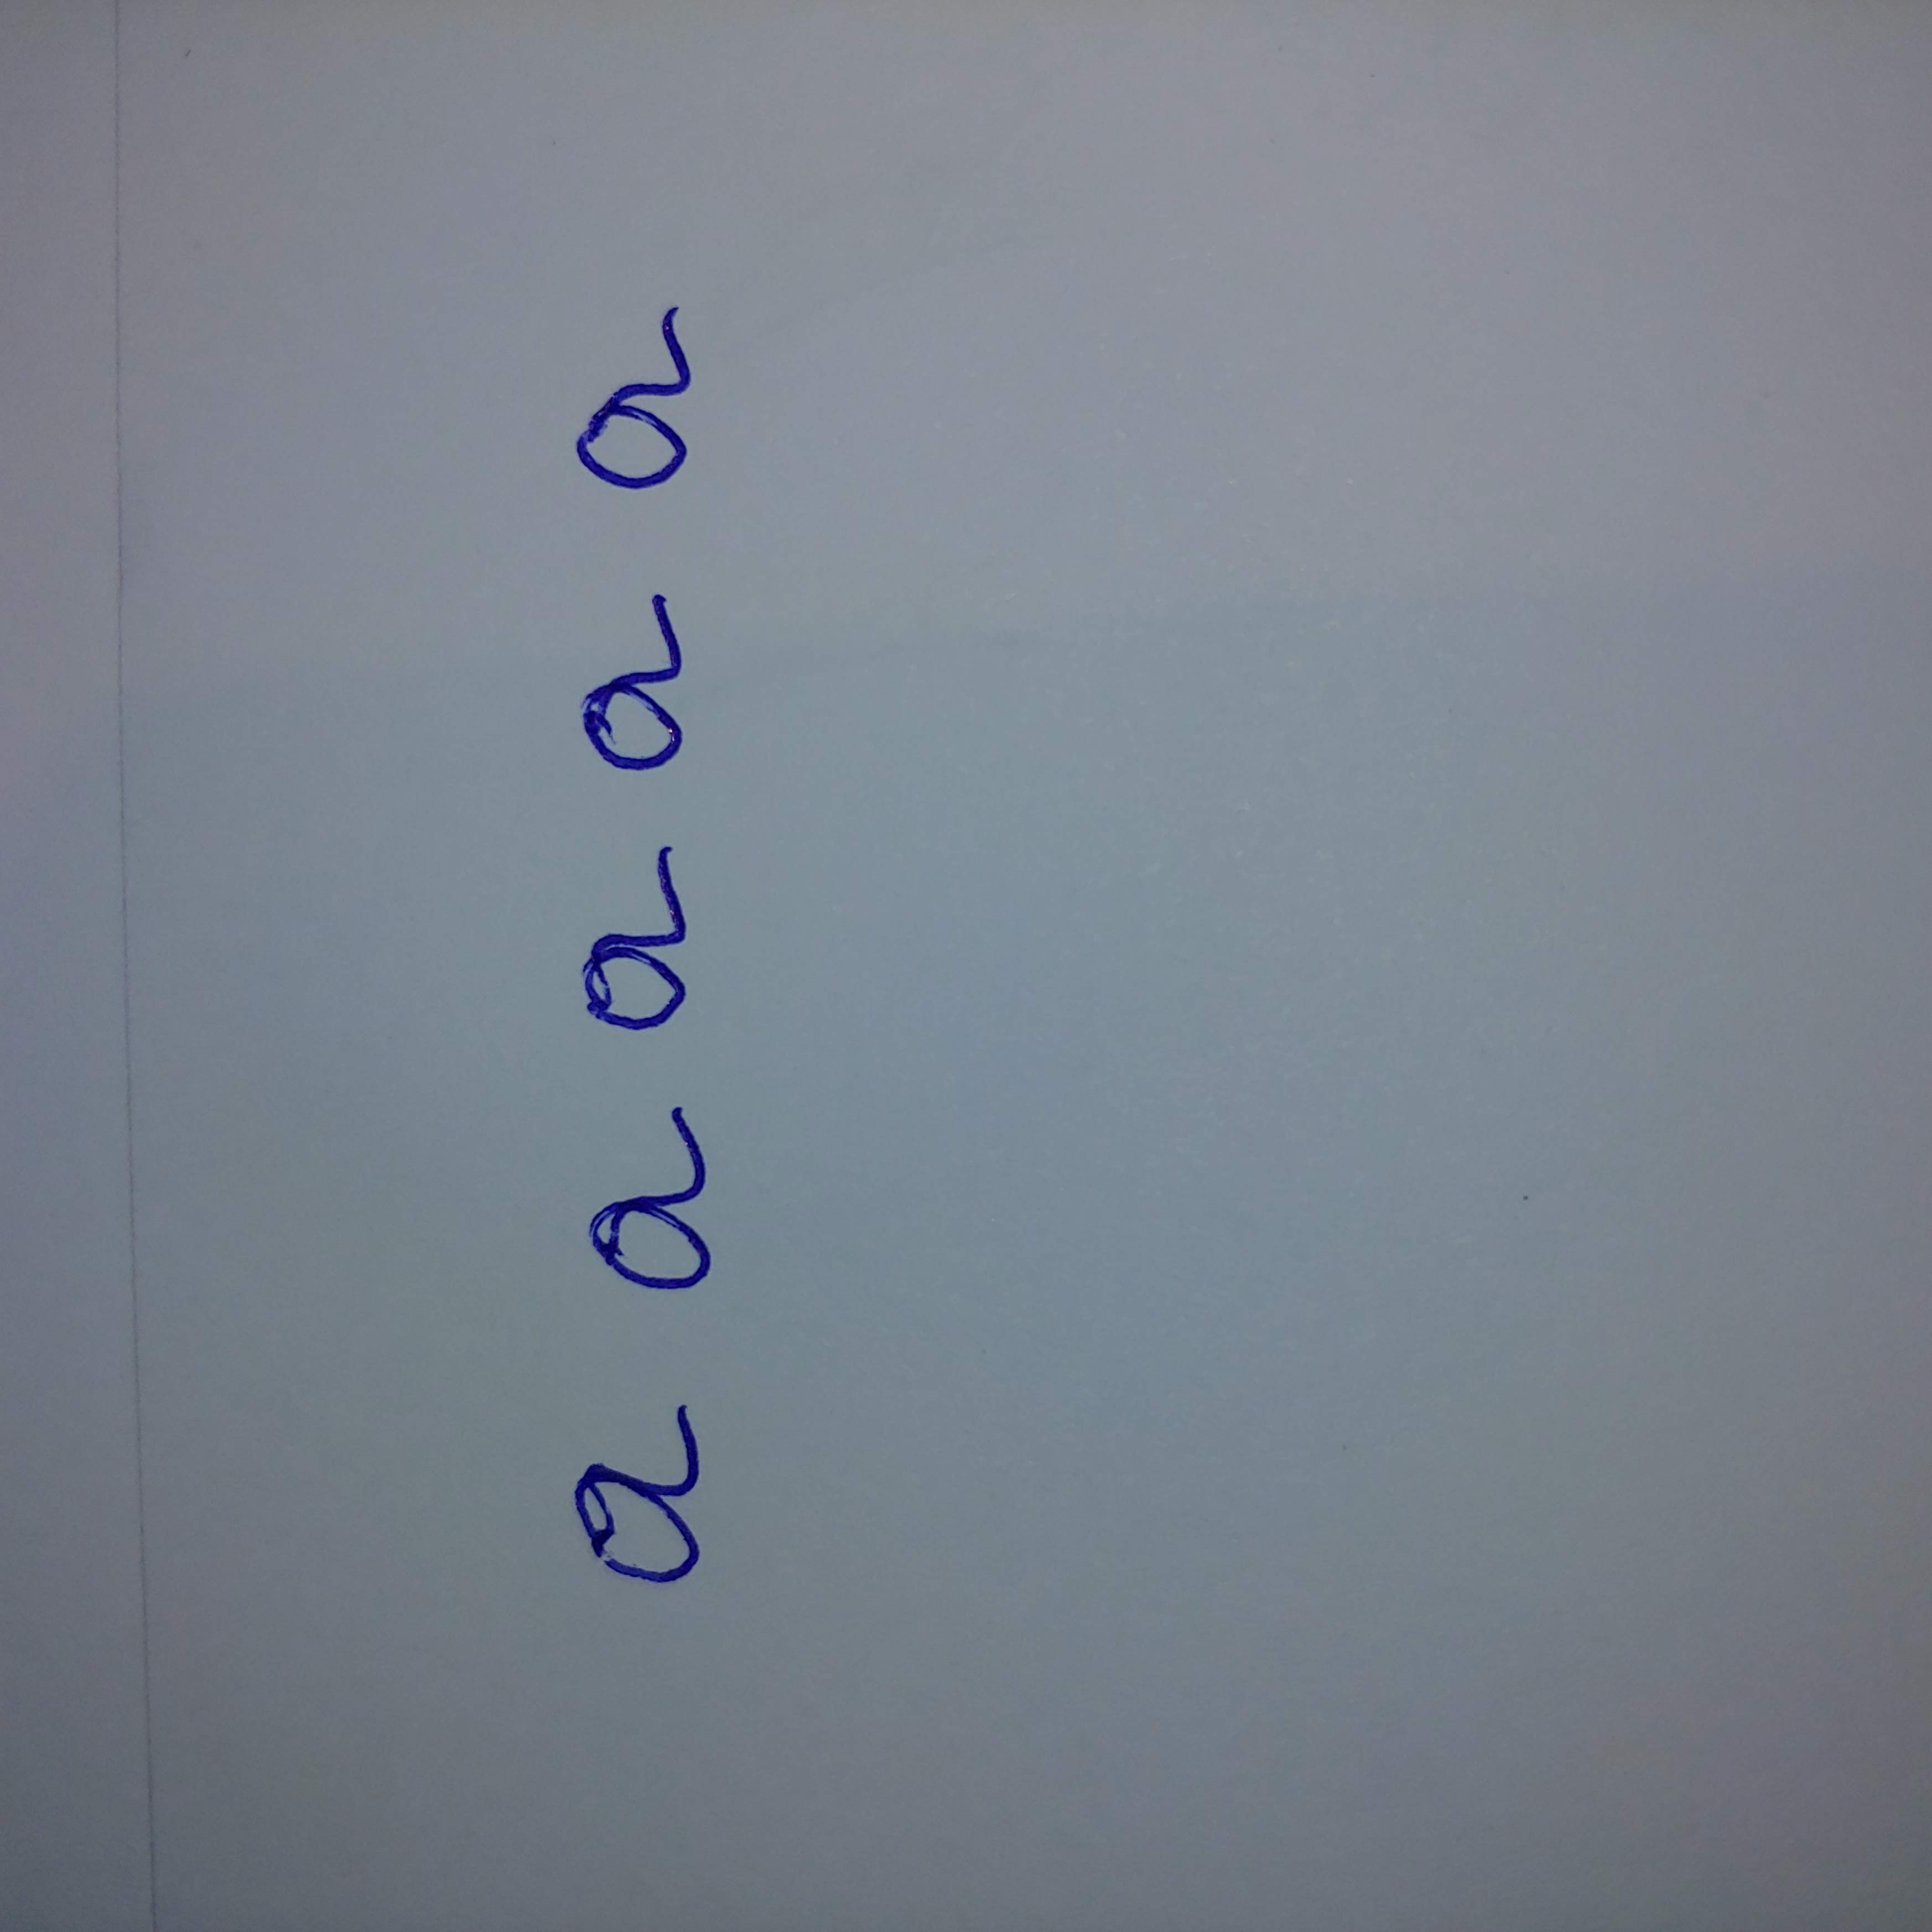 a a a a a